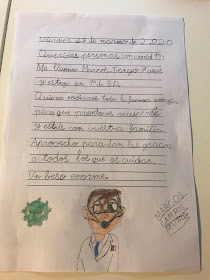 Viernes 27 de marzo de 2.020
Queridas personas con covid 19:
Me llamo Marcos. Tengo 7 años
y estoy en 1º de E.P.
Quiero enviaros toda la fuerza
para que prontos recuperéis
y estéis con vuestra familia.
Aprovecho para dar las gracias
a todos los que os cuidan.
Un beso enorme.
MARCOS